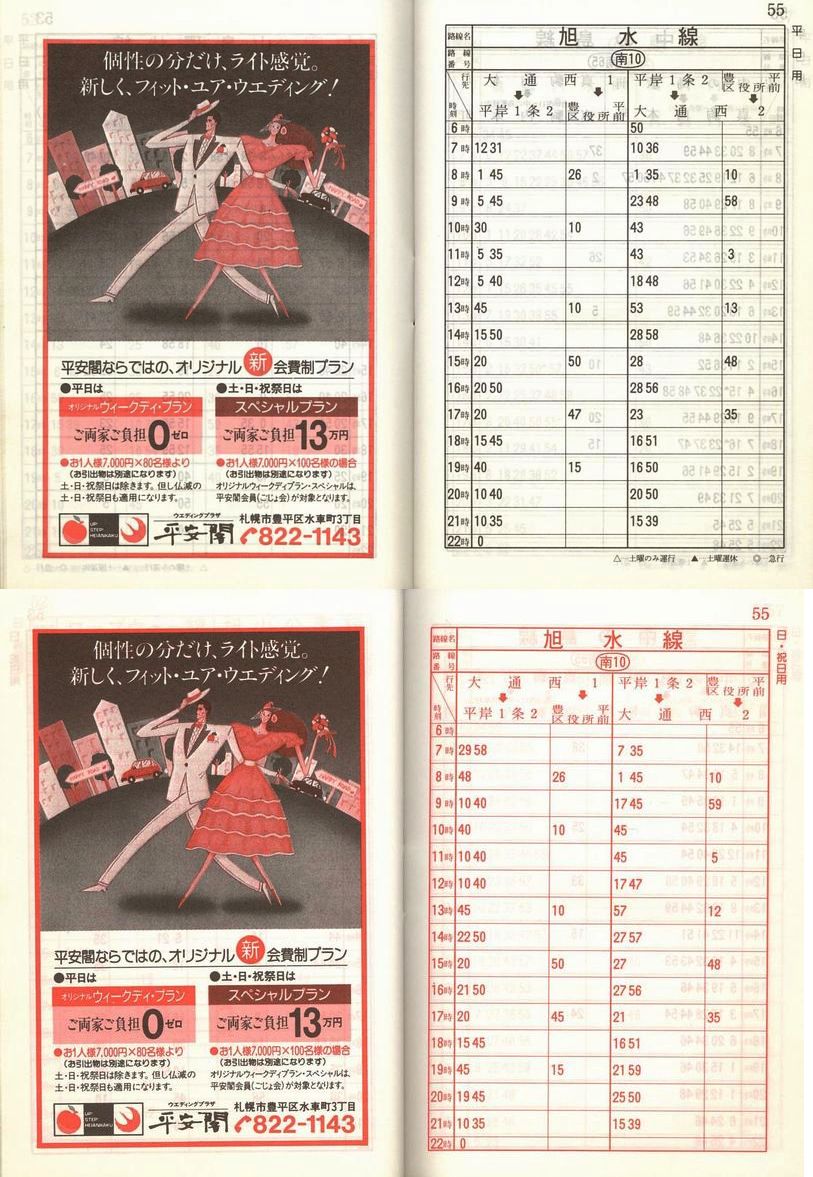 個性の分だけ、ライト感覚。
新しく、フィット・ユア・ウエディング!
HAPPY ROAD
HAPPY ROAD
平安閣ならではの、オリジナル 新 会費制プラン
●平日は
オリジナルウィークディ・プラン
ご両家ご負担0ゼロ
●お1人様7,000円×80名様より
(お引出物は別途になります)
土・日・祝祭日は除きます。但し仏滅の
土・日・祝祭日も適用になります。
●土・日・祝祭日は
スペシャルプラン
ご両家ご負担13万円
●お1人様7,000円×100名様の場合
(お引出物は別途になります)
オリジナルウィークディプラン・スペシャルは、
平安閣会員(ごじょ会)が対象となります。
UP
STEP
HEIANKAKU
ウエディングプラザ
平安閣
札幌市豊平区水車町3丁目
822-1143
55
平日用
路線名 旭水線
路線番号 南10
行先 大通西1 平岸1条2 豊平区役所前
時刻 平岸1条2 豊平区役所前 大通西2
6時 50
7時 12 31 10 36
8時 1 45 26 1 35 10
9時 5 45 23 48 58
10時 30 10 43
11時 5 35 43 3
12時 5 40 18 48
13時 45 10 53 13
14時 15 50 28 58
15時 20 50 28 48
16時 20 50 28 56
17時 20 47 23 35
18時 15 45 16 51
19時 40 15 16 50
20時 10 40 20 50
21時 10 35 15 39
22時 0
△…土曜のみ運行 ▲…土曜運休 ◎…急行
個性の分だけ、ライト感覚。
新しく、フィット・ユア・ウエディング!
HAPPY ROAD
HAPPY ROAD
平安閣ならではの、オリジナル 新 会費制プラン
●平日は
オリジナルウィークディ・プラン
ご両家ご負担0ゼロ
●お1人様7,000円×80名様より
(お引出物は別途になります)
土・日・祝祭日は除きます。但し仏滅の
土・日・祝祭日も適用になります。
●土・日・祝祭日は
スペシャルプラン
ご両家ご負担13万円
●お1人様7,000円×100名様の場合
(お引出物は別途になります)
オリジナルウィークディプラン・スペシャルは、
平安閣会員(ごじょ会)が対象となります。
UP
STEP
HEIANKAKU
ウエディングプラザ
平安閣
札幌市豊平区水車町3丁目
822-1143
55
日・祝日用
路線名 旭水線
路線番号 南10
行先 大通西1 平岸1条2 豊平区役所前
時刻 平岸1条2 豊平区役所前 大通西2
6時
7時 29 58 7 35
8時 48 26 1 45 10
9時 10 40 17 45 59
10時 40 10 45
11時 10 40 45 5
12時 10 40 17 47
13時 45 10 57 12
14時 22 50 27 57
15時 20 50 27 48
16時 21 50 27 56
17時 20 45 21 35
18時 15 45 16 51
19時 45 15 21 59
20時 19 45 25 50
21時 10 35 15 39
22時 0